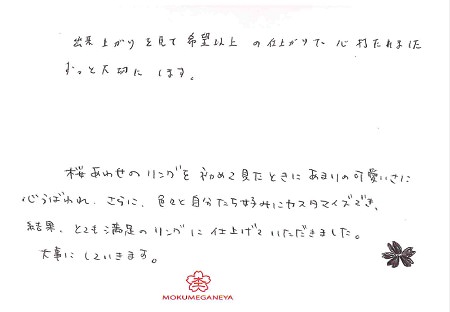 出来上がりを見て希望以上の仕上がりで心打たれました
ずっと大切にします。
桜あわせのリングを初めて見たときにあまりの可愛いさに
心うばわれ、さらに、色々と自分たち好みにカスタマイズでき、
結果、とても満足のリングに仕上げていただきました。
大事にしていきます。
MOKUMEGANEYA